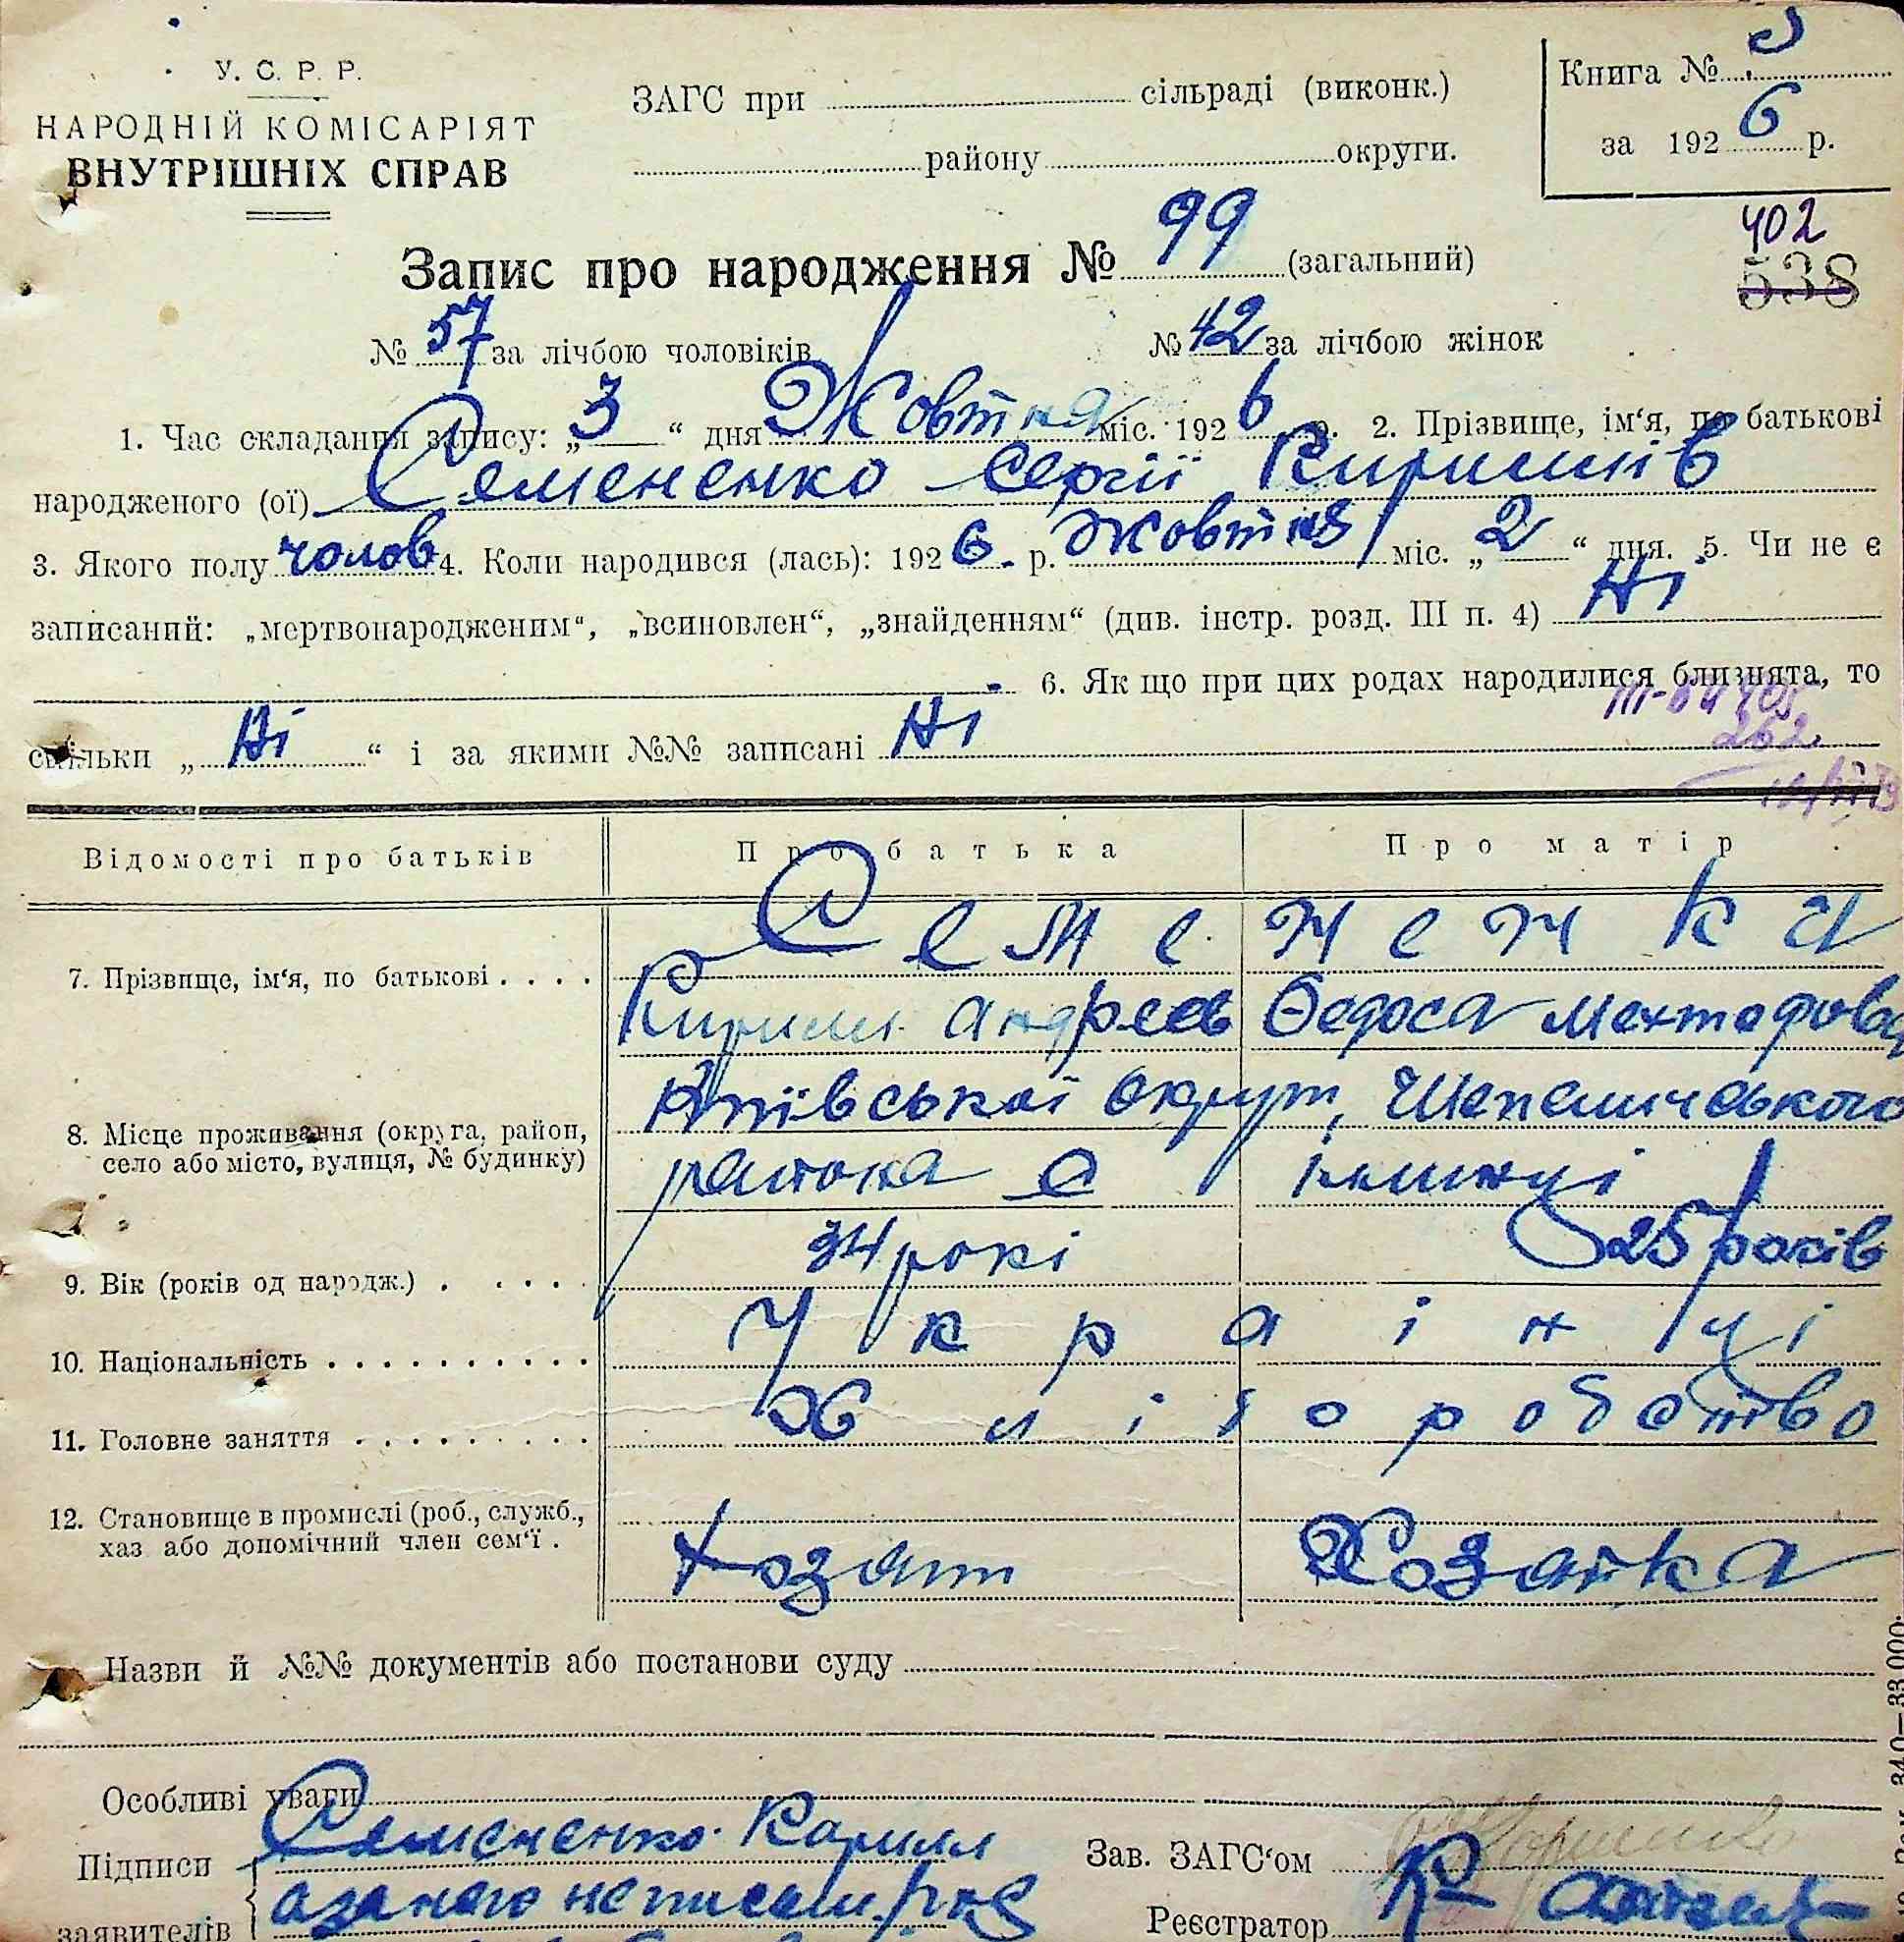 У. С. Р. Р.
НАРОДНІЙ КОМІСАРІЯТ
ВНУТРІШНІХ СПРАВ
ЗАГС при сільраді (виконк.)
району округи.
Книга №
за 192 6 р.
Запис про народження № 99 (загальний)
402
538
№ 57 за лічбою чоловіків № 42 за лічбою жінок
1. Час складання запису: „ 3 “ дня Жовтня міс. 192 6 р. 2. Прізвище, ім‘я, по батькові
народженого (ої) Семененко Сергій Кирилів
3. Якого полу чолов 4. Коли народився (лась): 192 6. р. Жовтня міс. „ 2 “ дня. 5. Чи не є
записаний: „мертвонародженим“, „всиновлен“, „знайденням“ (див. інстр. розд. III п. 4) Ні
6. Як що при цих родах народилися близнята, то
262
скільки „ Ні “ і за якими №№ записані Ні
Відомості про батьків Про батька Про матір
7. Прізвище, ім‘я, по батькові . . . . Семененки
Кирилл Андреев Федоса
8. Місце проживання (округа, район, село або місто, вулиця, № будинку) Київської Округи, Шепелицького
района с
9. Вік (років од народж.) . . . . . 34 рокі 25 років
10. Національність . . . . . . . . . . Українці
11. Головне заняття . . . . . . . . . Хліборобство
12. Становище в промислі (роб., служб., хаз або допомічний член сем‘ї . Хозяин Хозяйка
Назви й №№ документів або постанови суду
Особливі уваги
Підписи Семененко Кирилл
Зав. ЗАГС‘ом
заявителів
Реєстратор
340—33.000.